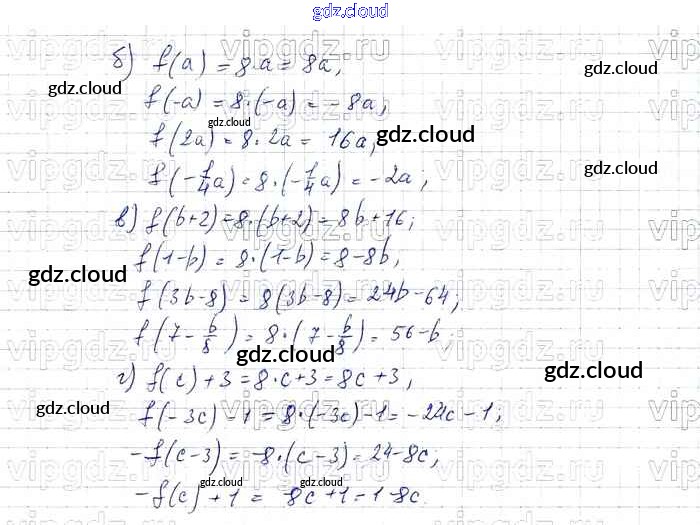 gdz.cloud
vipgdz.ru
б) f(a) = 8·a = 8a,
gdz.cloud
gdz.cloud
f(-a) = 8·(-a) = -8a,
gdz.cloud
f(2a) = 8·2a = 16a,
gdz.cloud
f(-1/4a) = 8·(-1/4a) = -2a;
gdz.cloud
в) f(b+2) = 8·(b+2) = 8b+16;
f(1-b) = 8·(1-b) = 8-8b,
gdz.cloud
f(3b-8) = 8(3b-8) = 24b-64;
f(7-b/8) = 8·(7-b/8) = 56-b;
gdz.cloud
г) f(c)+3 = 8·c+3 = 8c+3,
gdz.cloud
f(-3c)-1 = 8·(-3c)-1 = -24c-1;
gdz.cloud
-f(c-3) = -8·(c-3) = 24-8c;
gdz.cloud
-f(c)+1 = -8c+1 = 1-8c.
gdz.cloud
gdz.cloud
vipgdz.ru